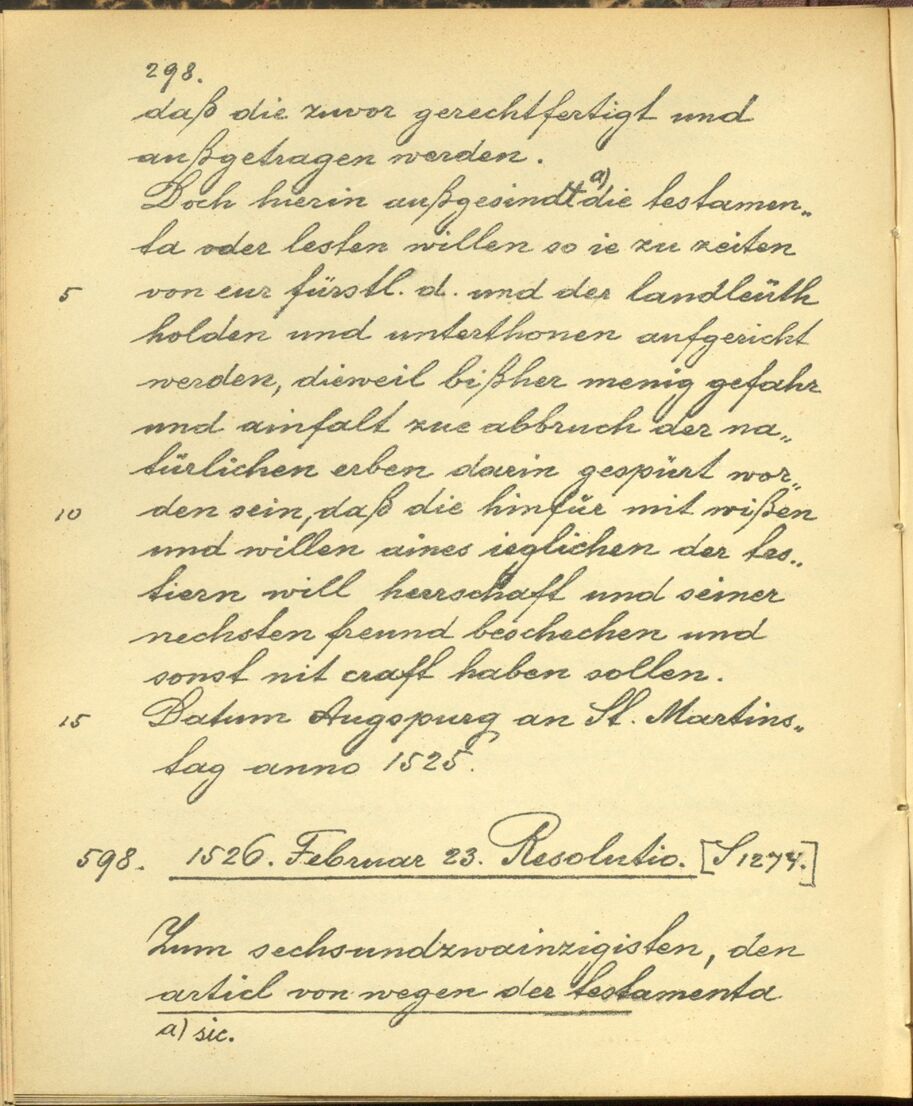 298.
daß die zuvor gerechtfertigt und
außgetragen werden.
Doch hierin außgesindtt a) die testamen„
ta oder lesten willen so ie zu zeiten
5 von eur fürstl. d. und der landleüth
holden und unterthonen aufgericht
werden, dieweil bißher menig gefahr
und ainfalt zue abbruch der na„
türlichen erben darin gespürt wor„
10 den sein, daß die hinfür mit wißen
und willen aines ieglichen der tes„
tiern will herrschaft und seiner
nechsten freund beschechen und
sonst nit craft haben sollen.
15 Datum Augspurg an St. Martins„
tag anno 1525.
598. 1526. Februar 23. Resolutio. [S 1274.]
Zum sechsundzwainzigisten, den
articl von wegen der testamenta
a) sic.